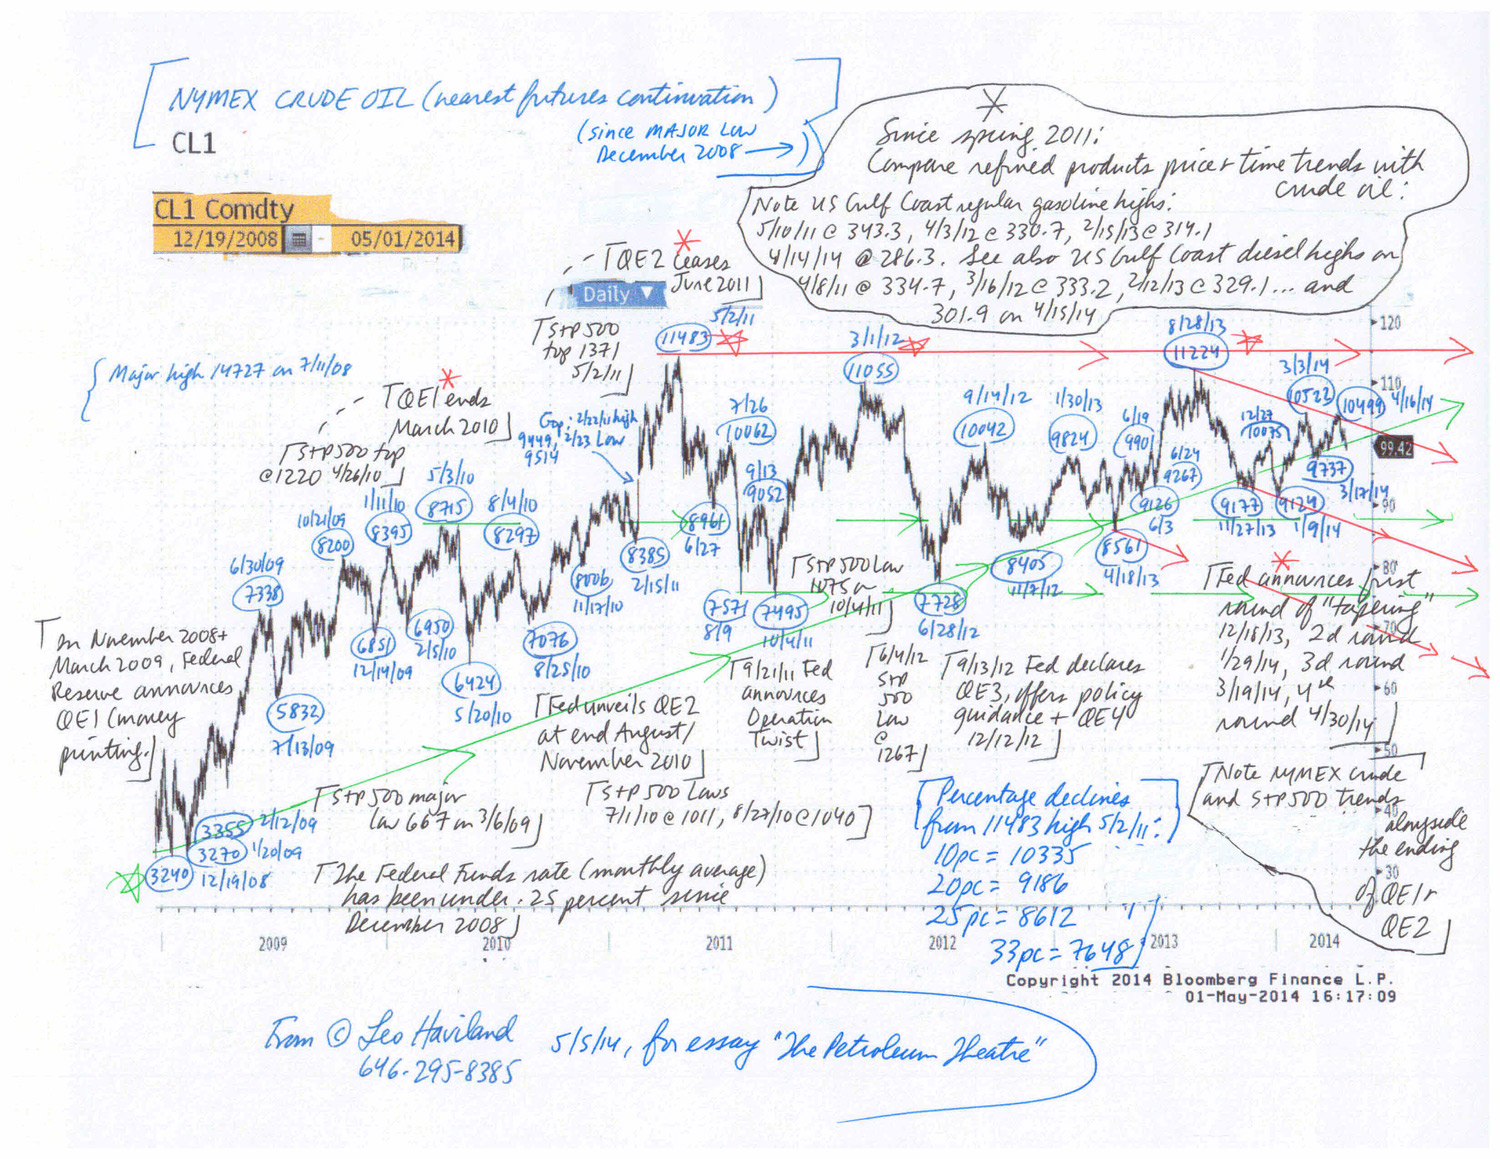 NYMEX CRUDE OIL (nearest futures continuation)
(since MAJOR LOW
December 2008 →)
CL1
CL1 Comdty
12/19/2008 - 05/01/2014
*
Since spring 2011:
Compare refined products price + time trends with
crude oil:
Note US Gulf Coast regular gasoline highs:
5/10/11 @ 343.3, 4/3/12 @ 330.7, 2/15/13 @ 314.1
4/14/14 @ 286.3. See also US Gulf Coast diesel highs on
4/8/11 @ 334.7, 3/16/12 @ 333.2, 2/12/13 @ 329.1... and
301.9 on 4/15/14
QE2 ceases
June 2011
Daily
S+P 500
top 1371
5/2/11
5/2/11
11483
3/1/12
11055
8/28/13
11224
3/3/14
10522
10499
4/16/14
Major high 14727 on 7/11/08
QE1 ends
March 2010
S+P 500 top
@1220 4/26/10
Gap: 2/22/11 high
9449, 2/23 Low
9514
7/26
10062
9/13
9052
9/14/12
10042
1/30/13
9824
6/19
9901
6/24
9267
12/27
10075
99.42
9737
3/17/14
10/21/09
8200
1/11/10
8395
5/3/10
8715
8/4/10
8297
8961
6/27
9126
6/3
9177
11/27/13
9124
1/9/14
6/30/09
7338
8385
2/15/11
8006
11/17/10
8405
11/7/12
8561
4/18/13
S+P 500 Low
1075 on
10/4/11
7571
8/9
7495
10/4/11
7728
6/28/12
6851
12/14/09
6950
2/5/10
7076
8/25/10
6424
5/20/10
5832
7/13/09
On November 2008 +
March 2009, Federal
Reserve announces
QE1 (money
printing.)
Fed unveils QE2
at end August/
November 2010
9/21/11 Fed
announces
Operation
Twist
6/4/12
S+P
500
Low
@
1267
9/13/12 Fed declares
QE3, offers policy
guidance + QE4
12/12/12
Fed announces first
round of "tapering"
12/18/13, 2d round
1/29/14, 3d round
3/19/14, 4th
round 4/30/14
S+P 500 major
low 667 on 3/6/09
S+P 500 Lows
7/1/10 @ 1011, 8/27/10 @ 1040
Percentage declines
from 11483 high 5/2/11:
10pc = 10335
20pc = 9186
25pc = 8612
33pc = 7648
Note NYMEX crude
and S+P 500 trends
alongside
the ending
of QE1 +
QE2
3355 2/12/09
3270 1/20/09
3240 12/19/08
The Federal Funds rate (monthly average)
has been under .25 percent since
December 2008
120
110
90
80
70
60
50
40
30
2009 2010 2011 2012 2013 2014
Copyright 2014 Bloomberg Finance L.P.
01-May-2014 16:17:09
From © Leo Haviland
646-295-8385
5/5/14, for essay "The Petroleum Theatre"